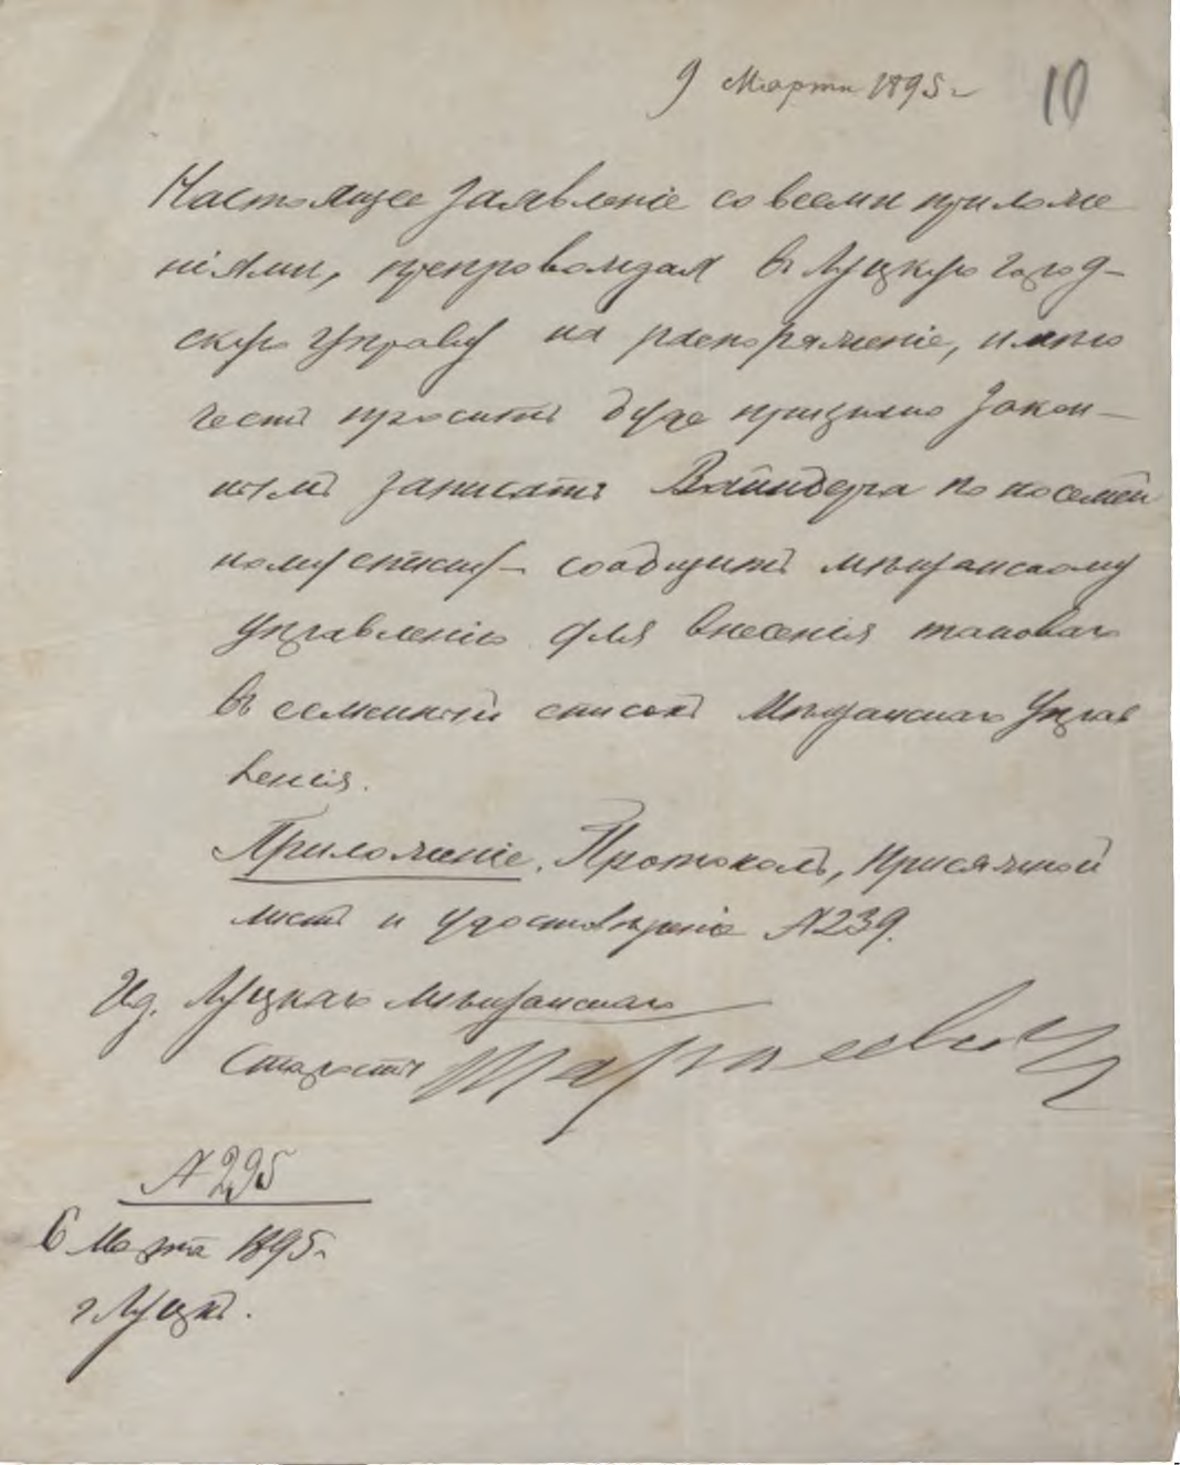 9 Марта 1895 г
10
Настоящее заявленіе со всеми приложе
ніями, препровождая въ Луцкую город-
скую Управу на распоряженіе, имѣю
честь просить буде признано закон-
нымъ записать Вайнберга по посемей
ному списку – сообщить мѣщанскому
управленію для внесенія таковаго
въ семейный списокъ Мѣщанскаго Управ
ленія.
Приложеніе. Протоколъ, присяжной
листъ и удостовѣреніе №239.
И д. Луцкаго Мѣщанскаго
Старосты
№ 295
6 Марта 1895 г.
г Луцкъ.